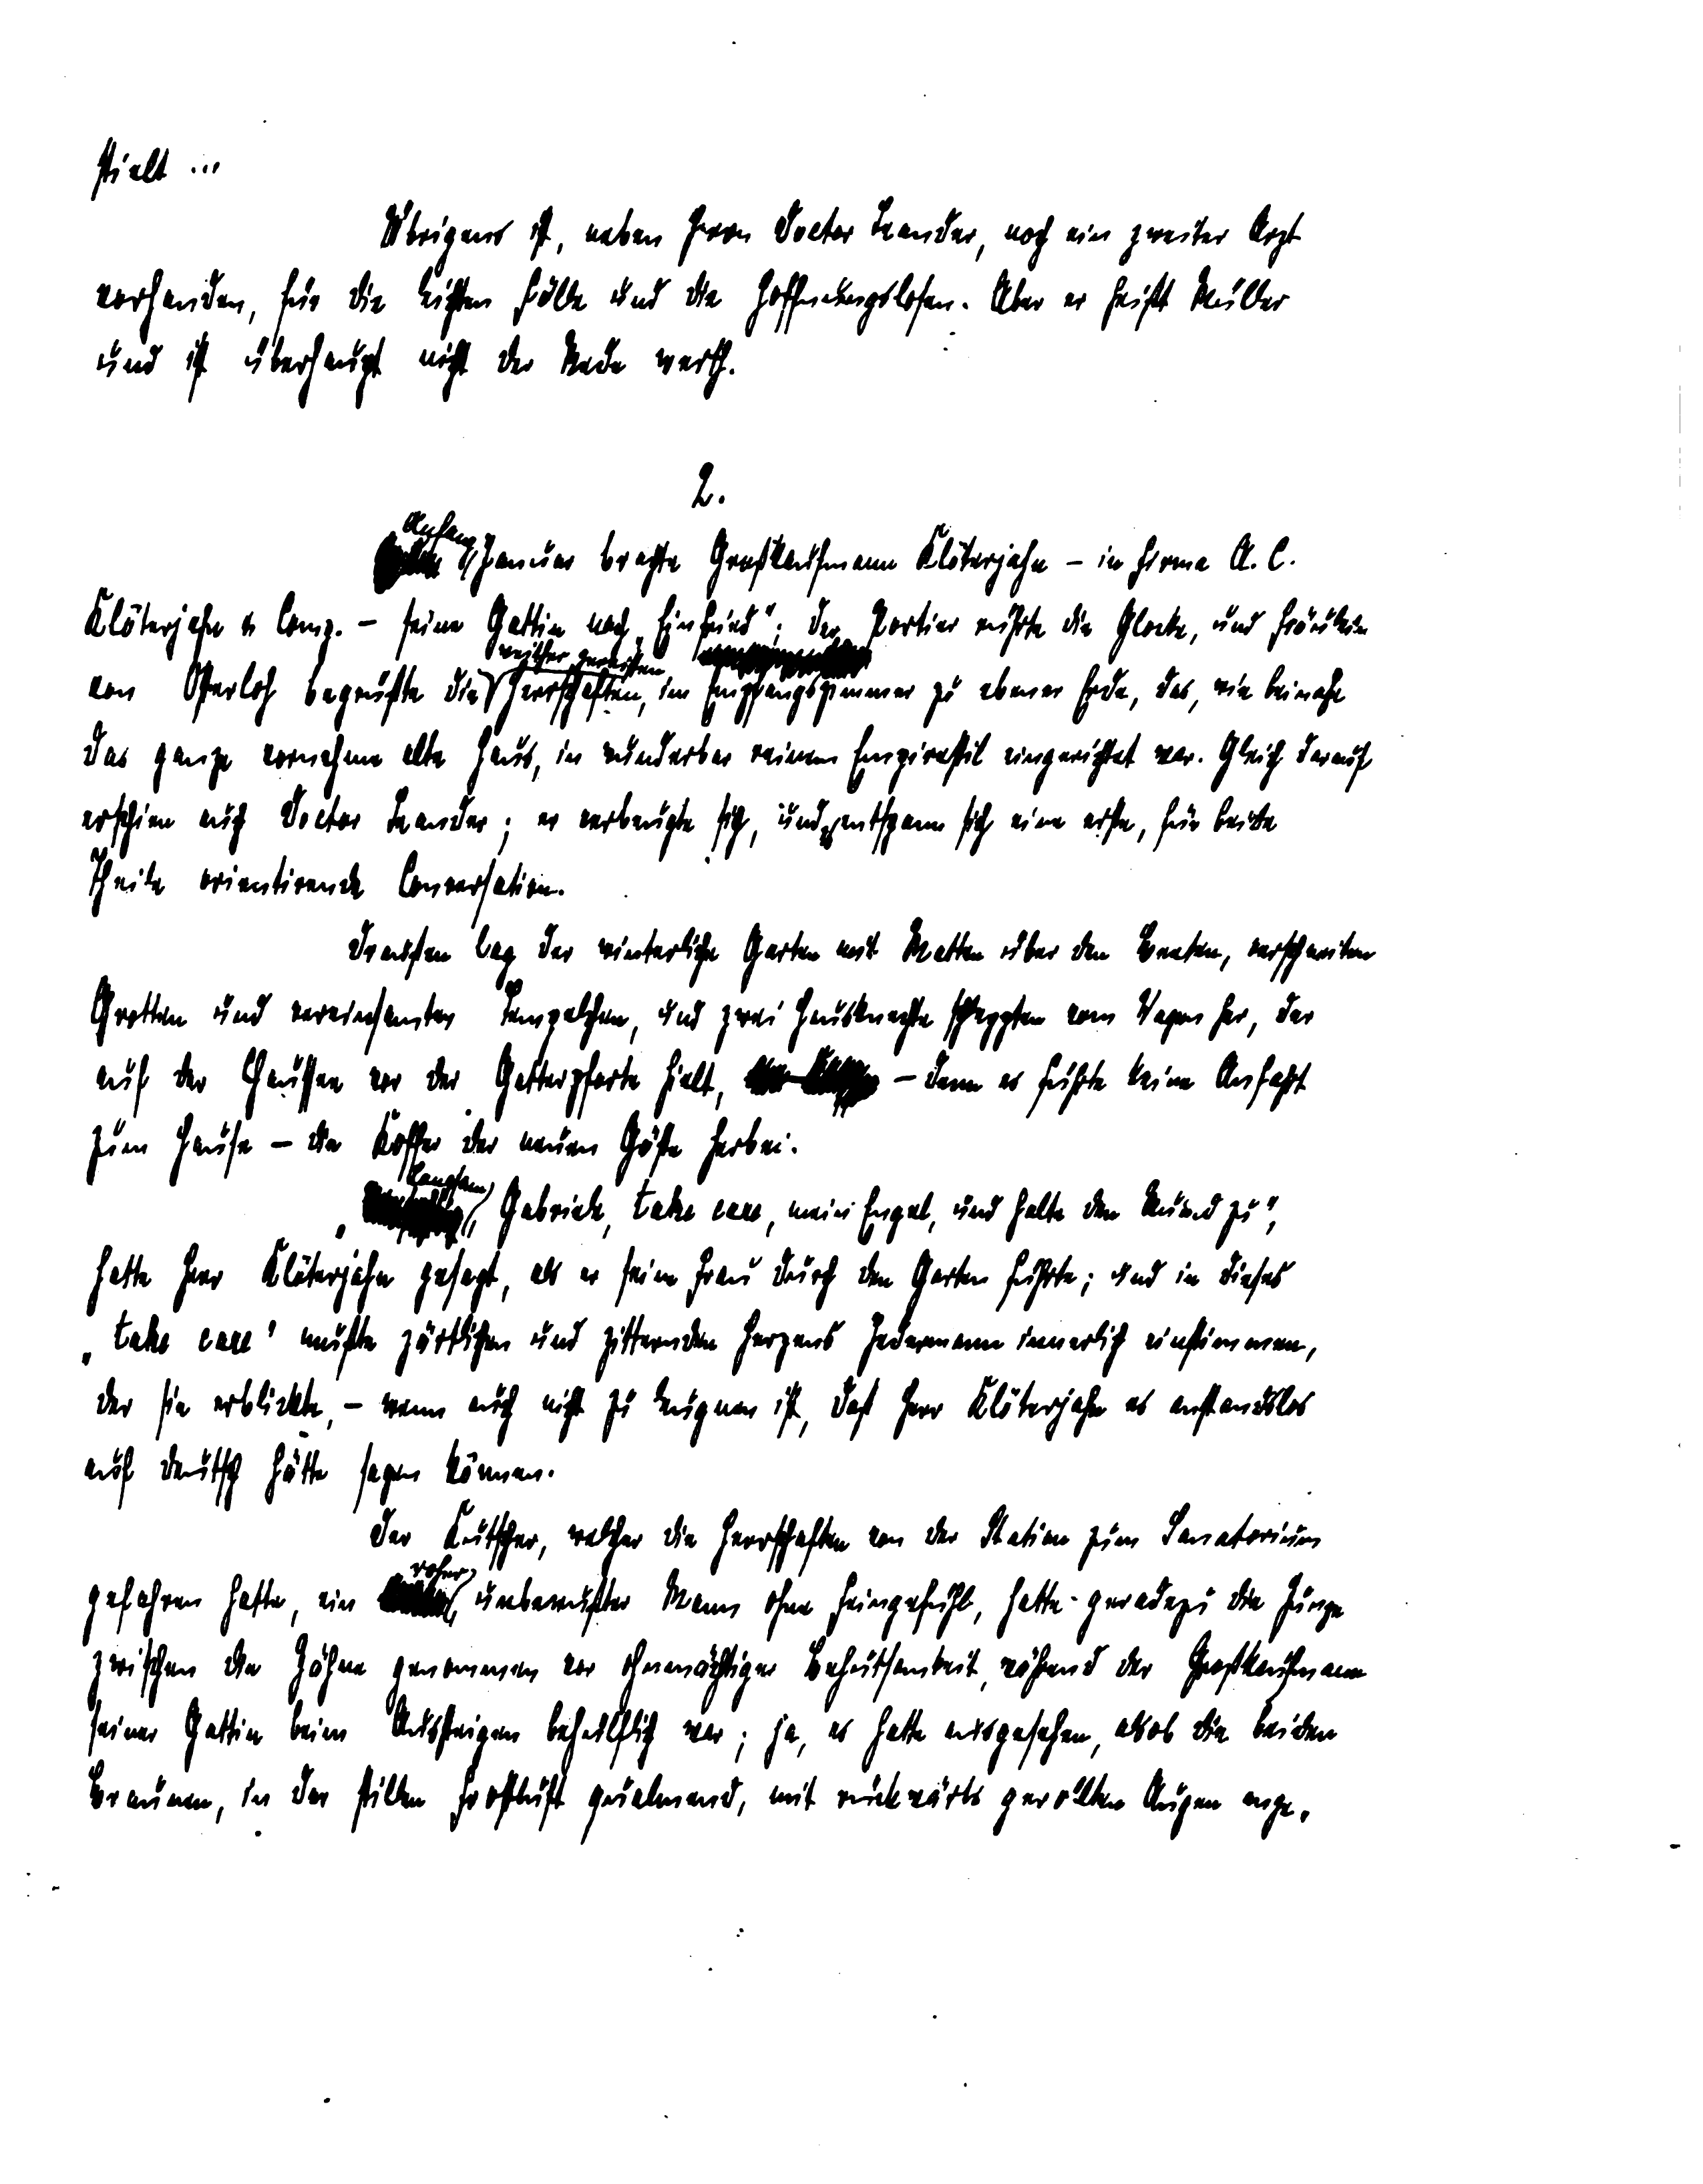 stielt ...
Übrigens ist, neben Herrn Doctor Leander, noch ein zweiter Arzt
vorhanden, für die leichten Fälle und die Hoffnungslosen. Aber er heißt Müller
und ist überhaupt nicht der Rede werth.
2.
Anfang
Januar brachte Großkaufmann Klöterjahn – in Firma A. C.
Klöterjahn & Comp. – seine Gattin nach „Einfried"; der Portier rührte die Glocke, und Fräulein
weither gereisten
von Osterloh begrüßte die Herrschaften, im Empfangszimmer zu ebener Erde, das, wie beinahe
das ganze vornehme alte Haus, in wunderbar reinem Empirestil eingerichtet war. Gleich darauf
erschien auch Doctor Leander; er verbeugte sich, und entspann sich eine erste, für beide
Theile orientirende Conversation.
Draußen lag der winterliche Garten mit Matten über den Beeten, verschneiten
Grotten und vereinsamten Tempelchen, und zwei Hausknechte schleppten vom Wagen her, der
auf der Chaussee vor der Gatterpforte hielt, – denn es führte keine Anfahrt
zum Hause – die Koffer der neuen Gäste herbei.
langsam,
„ Gabriele, take care, mein Engel, und halte den Mund zu",
hatte Herr Klöterjahn gesagt, als er seine Frau durch den Garten führte; und in dieses
„take care" mußte zärtlichen und zitternden Herzens Jedermann innerlich einstimmen,
der sie erblickte, – wenn auch nicht zu leugnen ist, daß Herr Klöterjahn es anstandslos
auf deutsch hätte sagen können.
Der Kutscher, welcher die Herrschaften von der Station zum Sanatorium
roher,
gefahren hatte, ein unbewußter Mann ohne Feingefühl, hatte geradezu die Zunge
zwischen die Zähne genommen vor ohnmächtiger Behutsamkeit, während der Großkaufmann
seiner Gattin beim Aussteigen behülflich war; ja, es hatte ausgesehen, als ob die beiden
Braunen, in der stillen Frostluft qualmend, mit rückwärts gerollten Augen ange-